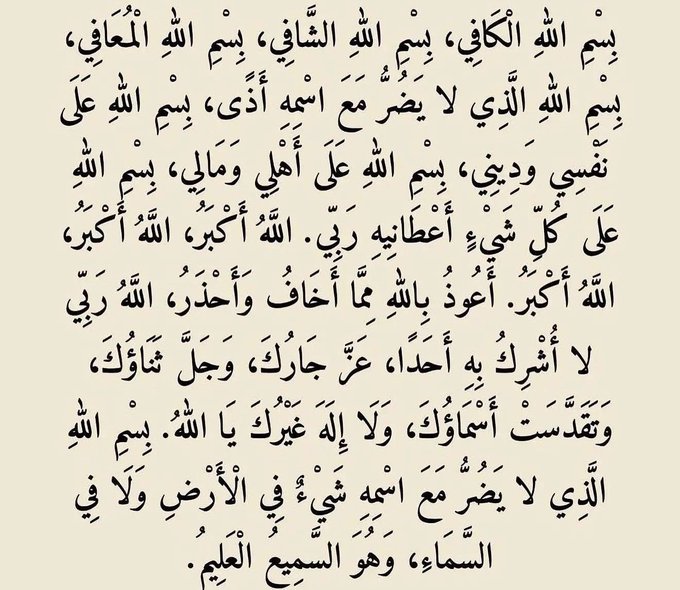 بِسْمِ اللهِ الْكَافِي، بِسْمِ اللهِ الشَّافِي، بِسْمِ اللهِ الْمُعَافِي،
بِسْمِ اللهِ الَّذِي لا يَضُرُّ مَعَ اسْمِهِ أَذًى، بِسْمِ اللهِ عَلَى
نَفْسِي وَدِينِي، بِسْمِ اللهِ عَلَى أَهْلِي وَمَالِي، بِسْمِ اللهِ
عَلَى كُلِّ شَيْءٍ أَعْطَانِيهِ رَبِّي. اللَّهُ أَكْبَرُ، اللَّهُ أَكْبَرُ،
اللَّهُ أَكْبَرُ. أَعُوذُ بِاللهِ مِمَّا أَخَافُ وَأَحْذَرُ، اللَّهُ رَبِّي
لا أُشْرِكُ بِهِ أَحَدًا، عَزَّ جَارُكَ، وَجَلَّ ثَنَاؤُكَ،
وَتَقَدَّسَتْ أَسْمَاؤُكَ، وَلَا إِلَهَ غَيْرُكَ يَا اللهُ. بِسْمِ اللهِ
الَّذِي لا يَضُرُّ مَعَ اسْمِهِ شَيْءٌ فِي الْأَرْضِ وَلَا فِي
السَّمَاءِ، وَهُوَ السَّمِيعُ الْعَلِيمُ.